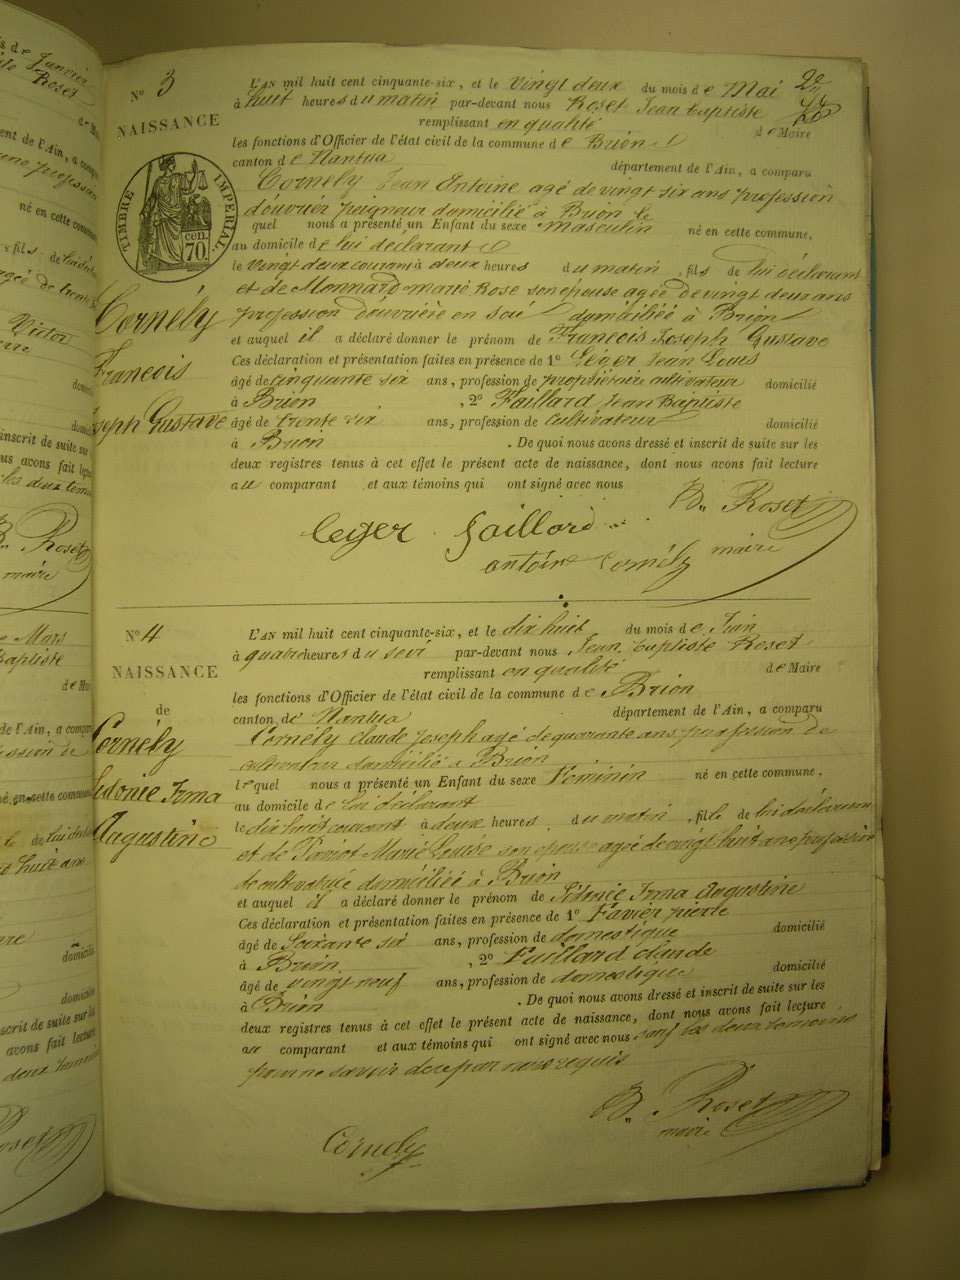 N° 3
NAISSANCE
TIMBRE IMPÉRIAL
cen. 70.
Cornély
François
Joseph Gustave
2e
L'AN mil huit cent cinquante-six, et le vingt deux du mois de Mai
à huit heures du matin par-devant nous Roset Jean Baptiste
remplissant en qualité de Maire
les fonctions d'Officier de l'état civil de la commune de Brion
canton de Nantua département de l'Ain, a comparu
Cornély Jean Antoine agé de vingt six ans profession
d'ouvrier peigneur domicilié à Brion le
quel nous a présenté un Enfant du sexe masculin né en cette commune,
au domicile de lui déclarant
le vingt deux courant à deux heures du matin, fils de lui déclarant
et de Monnard marie Rose son épouse agée de vingt deux ans
profession d'ouvrière en soie domiciliée à Brion
et auquel il a déclaré donner le prénom de François Joseph Gustave
Ces déclaration et présentation faites en présence de 1° Léger Jean Louis
âgé de cinquante six ans, profession de propriétaire cultivateur domicilié
à Brion, 2° Faillard Jean Baptiste
âgé de trente six ans, profession de cultivateur domicilié
à Brion. De quoi nous avons dressé et inscrit de suite sur les
deux registres tenus à cet effet le présent acte de naissance, dont nous avons fait lecture
au comparant et aux témoins qui ont signé avec nous
Bte Roset
maire
leger faillard
antoine Cornély
N° 4
NAISSANCE
de
Cornély
Sidonie Irma
Augustine
L'AN mil huit cent cinquante-six, et le dix huit du mois de Juin
à quatre heures du soir par-devant nous Jean Baptiste Roset
remplissant en qualité de Maire
les fonctions d'Officier de l'état civil de la commune de Brion
canton de Nantua département de l'Ain, a comparu
Cornély Claude Joseph agé de quarante ans profession de
cultivateur domicilié à Brion
lequel nous a présenté un Enfant du sexe Féminin né en cette commune,
au domicile de lui déclarant
le dix huit courant à deux heures du matin, fille de lui déclarant
et de Marie Louise son épouse agée de vingt huit ans profession
de cultivatrice domiciliée à Brion
et auquel il a déclaré donner le prénom de Sidonie Irma Augustine
Ces déclaration et présentation faites en présence de 1° Favier pierre
âgé de Soixante six ans, profession de domestique domicilié
à Brion, 2° Faillard claude
âgé de vingt neuf ans, profession de domestique domicilié
à Brion. De quoi nous avons dressé et inscrit de suite sur les
deux registres tenus à cet effet le présent acte de naissance, dont nous avons fait lecture
au comparant et aux témoins qui ont signé avec nous sauf les deux temoins
pour ne savoir de ce par nous requis
Bte Roset
maire
Cornely